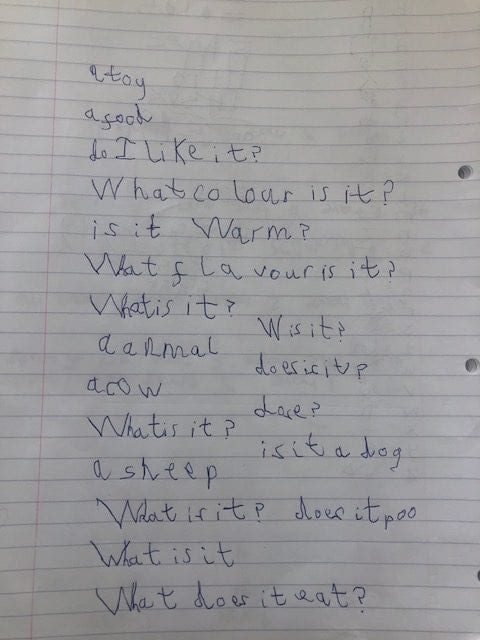 a toy
a food
do I like it?
What colour is it?
is it Warm?
What flavour is it?
What is it?
W is it?
a anmal
does is it?
a cow
dose?
What is it?
is it a dog
a sheep
What is it? does it poo
What is it
What does it eat?